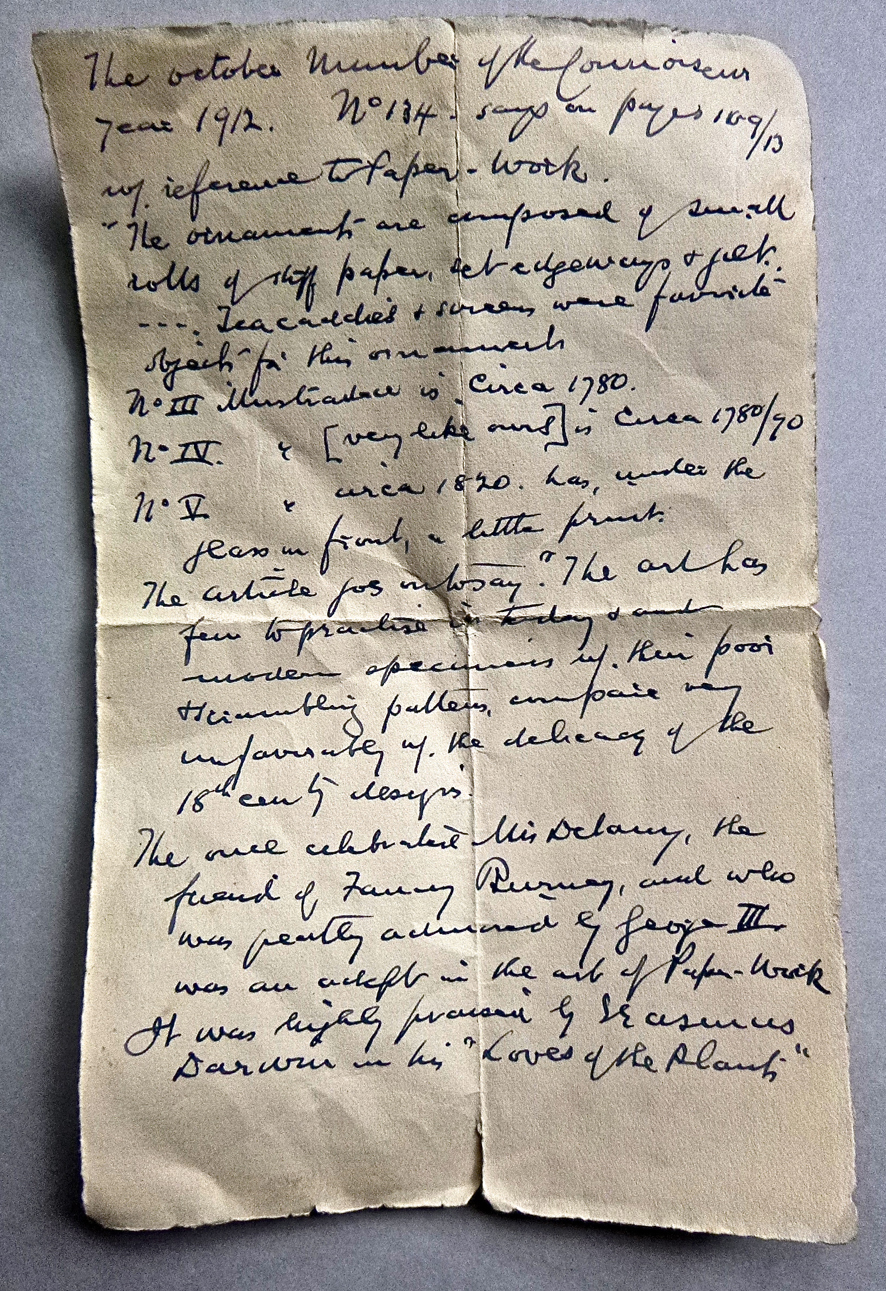 The october Number of the Connoiseur
year 1912. No 134 - says on pages 109/13
w. reference to Paper-Work.
"The ornaments are composed of small
rolls of stiff paper, set edgeways & gilt.
----. Teacaddies & screens were favorite
objects for this ornament
No III illustrated is Circa 1780.
No IV. " [very like ours] is Circa 1780/90
No V " circa 1820. has, under the
glass in front, a little print.
The article goes on to say: "The art has
few to practise it today & and
modern specimens w. their poor
& scrambling pattern, compare very
unfavorably w. the delicacy of the
18th centy designs.
The once celebrated Mrs Delany, the
friend of Fanny Burney, and who
was greatly admired by George III.
was an adept in the art of Paper-Work
It was highly praised by Erasmus
Darwin in his "Loves of the Plants"